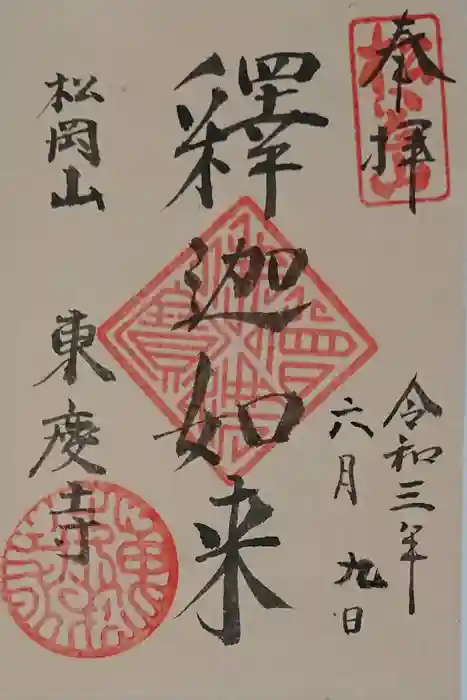 奉拝
令和三年
六月九日
釋迦如来
松岡山
東慶寺